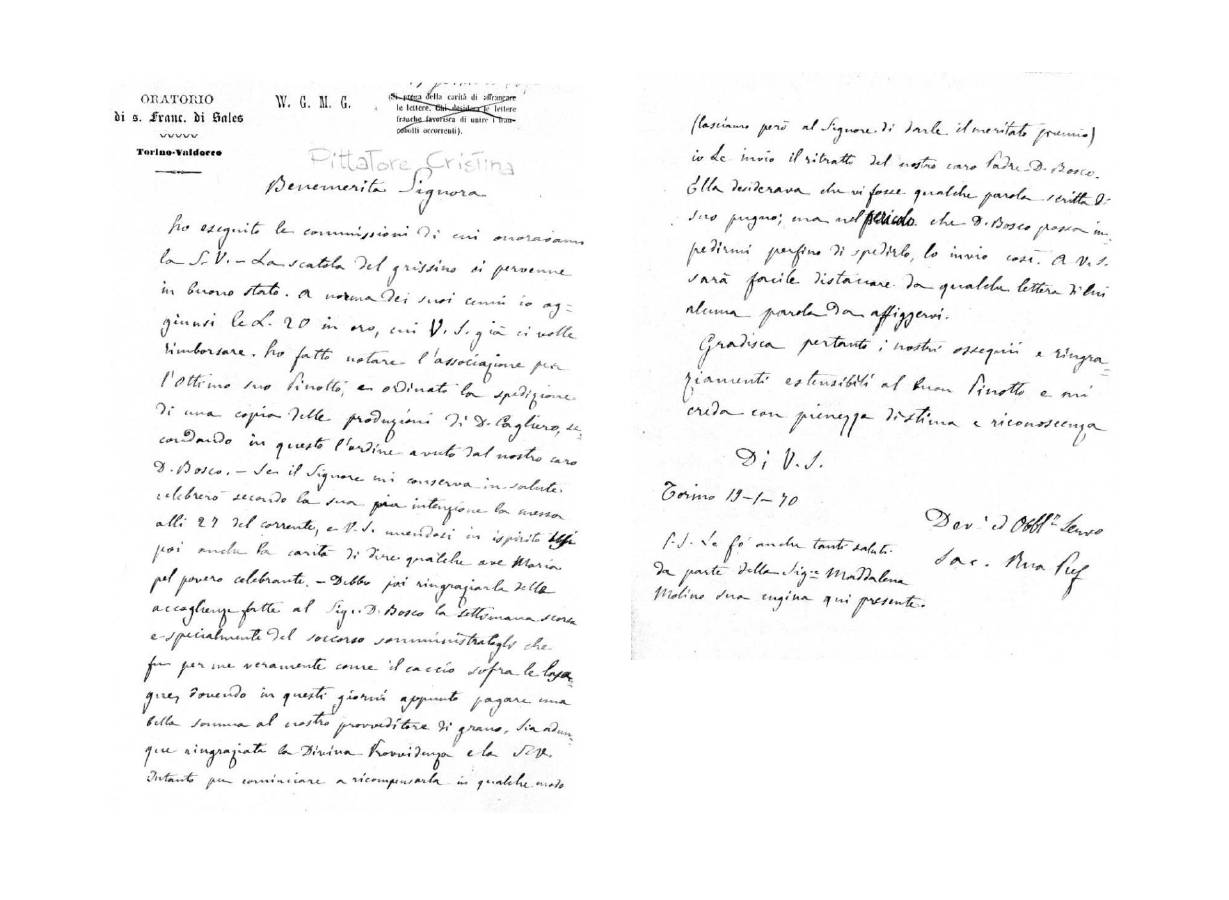 ORATORIO
di s. Franc. di Sales
Torino-Valdocco
W. G. M. G.
(Si prega della carità di affrancare
le lettere. Chi desidera le lettere
franche favorisca di unire i fran-
cobolli occorrenti).
Pittatore Cristina
Benemerita Signora
Ho eseguito le commissioni di cui onoravami
la S. V. – La scatola del grissino ci pervenne
in buono stato. A norma dei suoi cenni io ag=
giunsi le L. 20 in oro, cui V. S. già ci volle
rimborsare. Ho fatto notare l'associazione per
l'Ottimo suo Pinotto, e ordinato la spedizione
di una copia delle produzioni di D. Cagliero, se=
condando in questo l'ordine avuto dal nostro caro
D. Bosco. – Se il Signore mi conserva in salute,
celebrerò secondo la sua pia intenzione la messa
alli 27 del corrente, e V. S. unendosi in ispirito
poi anche la carità di dire qualche ave Maria
pel povero celebrante. – Debbo poi ringraziarla delle
accoglienze fatte al Sig. D. Bosco la settimana scorsa
e specialmente del soccorso somministratogli che
fu per me veramente come il caccio sopra le lasa=
gne, dovendo in questi giorni appunto pagare una
bella somma al nostro provveditore di grano. Sia adun=
que ringraziata la Divina Provvidenza e la S. V.
Intanto per cominciare a ricompensarla in qualche modo
(lasciamo però al Signore di darle il meritato premio)
io Le invio il ritratto del nostro caro Padre D. Bosco.
Ella desiderava che vi fosse qualche parola scritta di
suo pugno; ma nel pericolo che D. Bosco possa im=
pedirmi perfino di spedirlo, lo invio così. A V. S.
sarà facile distaccare da qualche lettera di lui
alcuna parola da affiggervi.
Gradisca pertanto i nostri ossequii e ringra=
ziamenti estensibili al buon Pinotto e mi
creda con pienezza di stima e riconoscenza
Di V. S.
Torino 19-1-70
Dev. ed Obbl. Servo
Sac. Rua Pref
P. S. Le fo' anche tanti saluti
da parte della Sig.ra Maddalena
Molino sua cugina qui presente.